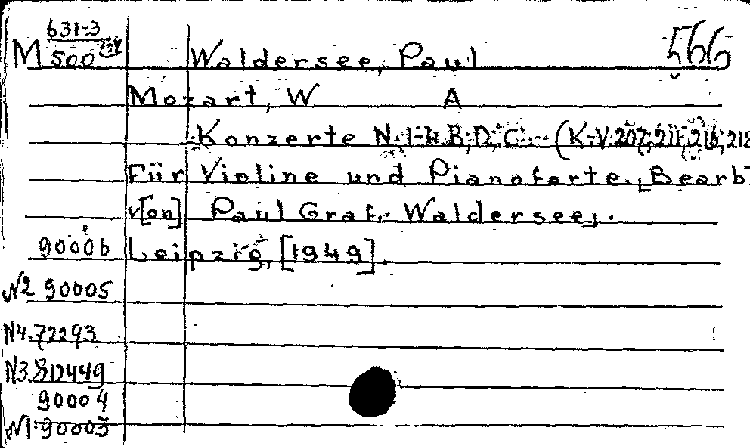 631-3
M 500 Waldersee, Paul 566
Mozart, W A
Konzerte N. 1-4. B, D, C. (K-V. 207, 211, 216, 218
Für Violine und Pianoforte. Bearb
v[on] Paul Graf. Waldersee.
90006 Leipzig, [1949].
N2 90005
N4. 72293
N3.
90004
N1. 90003